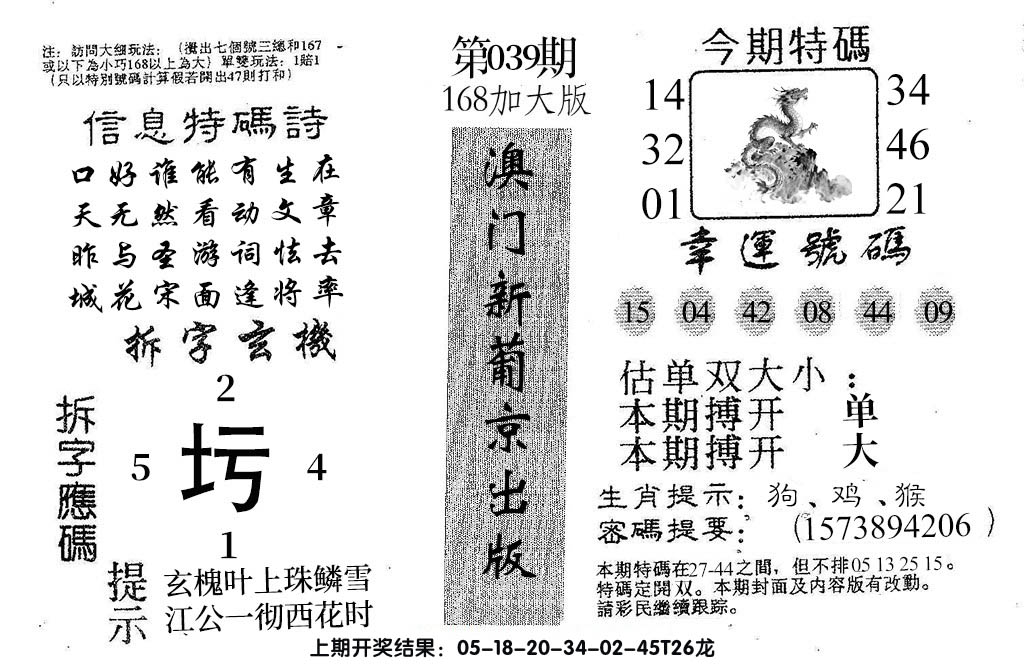 注：訪問大細玩法：（攪出七個號三總和167
或以下為小巧168以上為大）單雙玩法：1賠1
（只以特別號碼計算假若開出47則打和）
信息特碼詩
口好谁能有生在
天无然看动文章
昨与圣游词怯去
城花宋面逢将率
拆字玄機
拆字應碼
2
5 圬 4
1
提示
玄槐叶上珠鳞雪
江公一彻西花时
第039期
168加大版
澳门新葡京出版
今期特碼
14 34
32 46
01 21
幸運號碼
15 04 42 08 44 09
估单双大小：
本期搏开 单
本期搏开 大
生肖提示：狗、鸡、猴
密碼提要：（1573894206）
本期特碼在27-44之間，但不排05 13 25 15。
特碼定開双。本期封面及内容版有改動。
請彩民繼續跟踪。
上期开奖结果：05-18-20-34-02-45T26龙